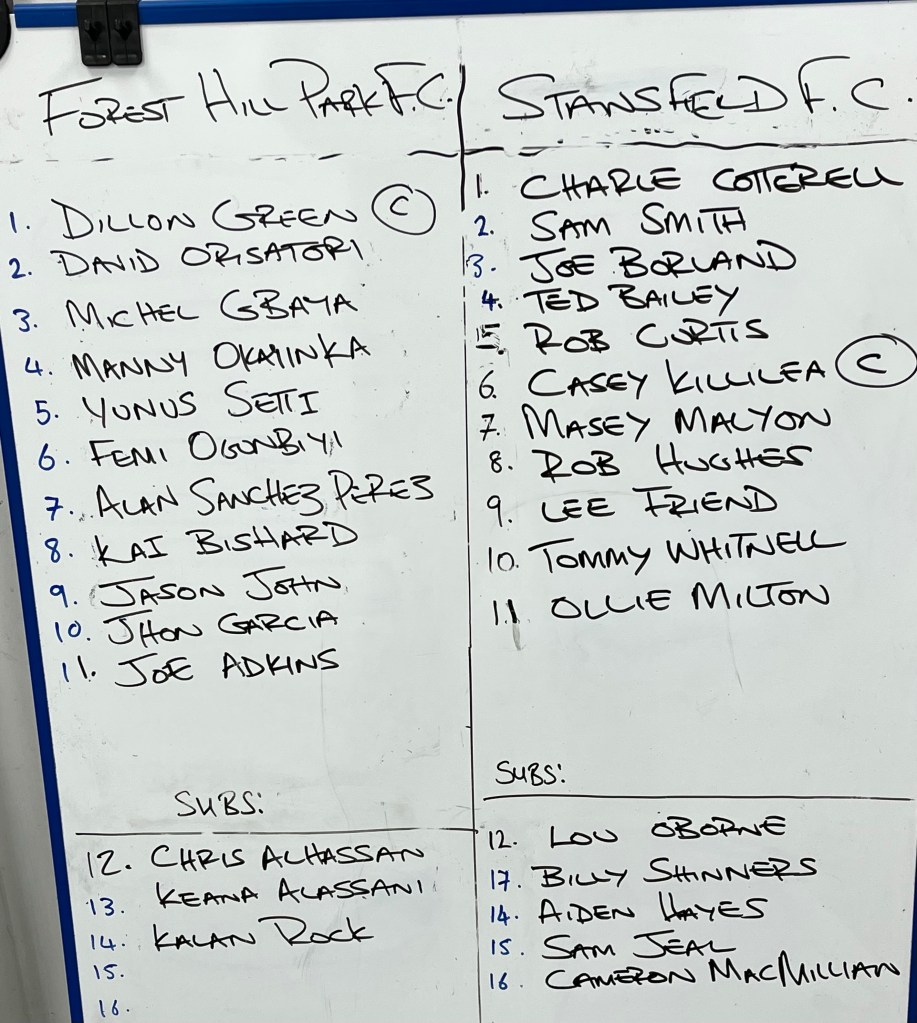 FOREST HILL PARK F.C.
1. DILLON GREEN C
2. DAVID ORISATORI
3. MICHEL GBAYA
4. MANNY OKAYINKA
5. YUNUS SETTI
6. FEMI OGUNBIYI
7. ALAN SANCHEZ PEREZ
8. KAI BISHARD
9. JASON JOHN
10. JHON GARCIA
11. JOE ADKINS
SUBS:
12. CHRIS ALHASSAN
13. KEANA ALASSANI
14. KALAN ROCK
15.
16.
STANSFELD F.C.
1. CHARLE COTTERELL
2. SAM SMITH
3. JOE BORLAND
4. TED BAILEY
15. ROB CURTIS
6. CASEY KILLILEA C
7. MASEY MALYON
8. ROB HUGHES
9. LEE FRIEND
10. TOMMY WHITNELL
11 OLLIE MILTON
SUBS:
12. LOU OBORNE
17. BILLY SHINNERS
14. AIDEN HAYES
15. SAM JEAL
16. CAMERON MACMILLIAN